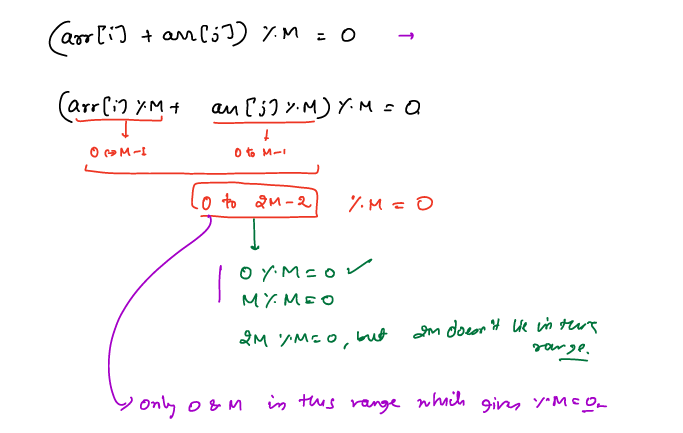 (arr[i] + arr[j]) % M = 0 →
(arr[i] % M + arr[j] % M) % M = 0
0 to M-1 0 to M-1
0 to 2M-2 % M = 0
0 % M = 0 ✓
M % M = 0
2M % M = 0, but 2M doesn't lie in this
range.
only 0 & M in this range which gives % M = 0